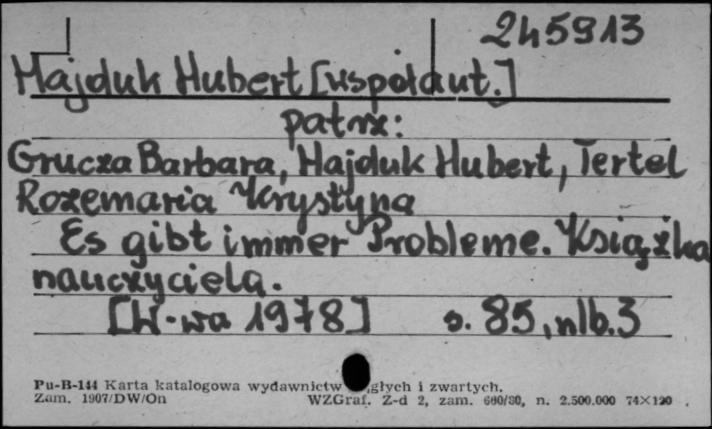 245913
Hajduk Hubert [współaut.]
patrz:
Grucza Barbara, Hajduk Hubert, Tertel
Rozemaria Krystyna
Es gibt immer Probleme. Książka
nauczyciela.
[W-wa 1978] s. 85, nlb. 3
Pu-B-144 Karta katalogowa wydawnictw głych i zwartych.
Zam. 1907/DW/On WZGraf. Z-d 2, zam. 600/80, n. 2.500.000 74×120